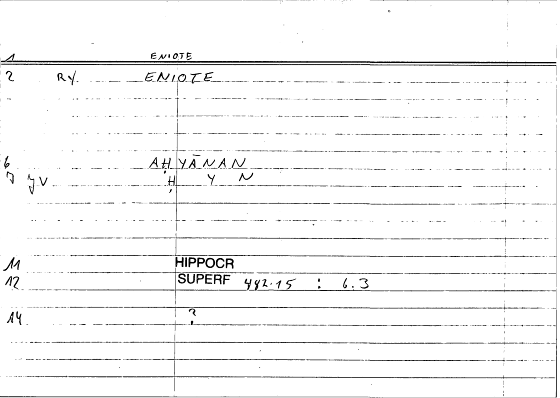 1 ENIOTE
2 RY. ENIOTE
6 AḤYĀNAN
JV Ḥ Y N
11 HIPPOCR
12 SUPERF 482.15 : 6.3
14 ?